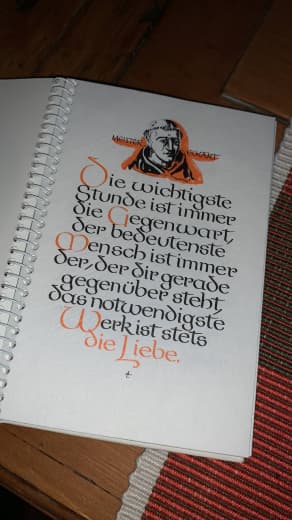 MEISTER ECKHART
Die wichtigste
Stunde ist immer
die Gegenwart,
der bedeutenste
Mensch ist immer
der, der dir gerade
gegenüber steht,
das notwendigste
Werk ist stets
die Liebe.